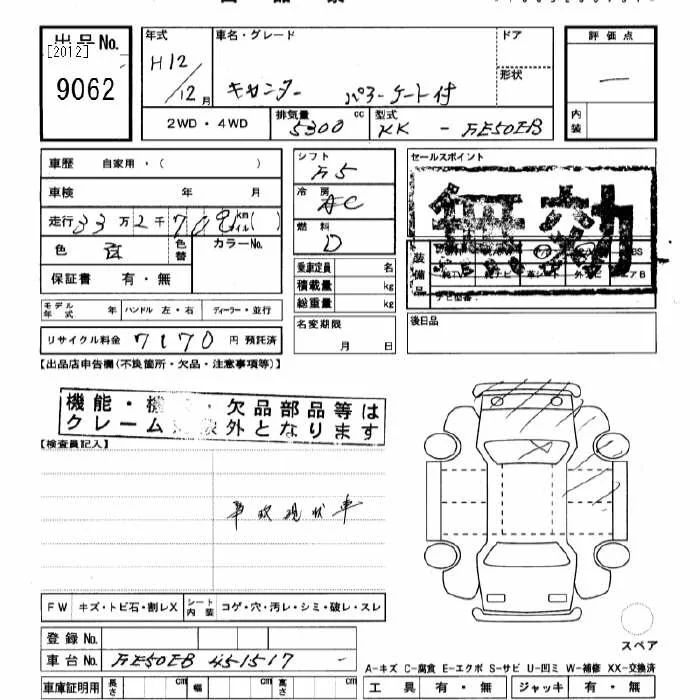 出品No.
[2012]
9062
年式
H12/12月
車名・グレード
キャンター パワーゲート付
ドア
形状
評価点
—
内装
2WD・4WD
排気量
5300 cc
型式
KK - FE50EB
車歴 自家用・( )
車検 年 月
走行 33万2千709km マイル( )
色
色替
カラーNo.
保証書 有・無
シフト
F5
冷房
AC
燃料
D
乗車定員 名
積載量 kg
総重量 kg
セールスポイント
無効
装備品
純TV
純ナビ
革シート
エアB
ナビ型番:
モデル年式 年
ハンドル 左・右
ディーラー・並行
リサイクル料金 7170 円 預託済
名変期限
月 日
後日品
【出品店申告欄(不良箇所・欠品・注意事項等)】
機能・機 ・欠品部品等は
クレーム対象外となります
【検査員記入】
事故現状車
FW キズ・トビ石・割レX
シート内装 コゲ・穴・汚レ・シミ・破レ・スレ
登録No.
車台No. FE50EB 451517 -
スペア
A-キズ C-腐食 E-エクボ S-サビ U-凹ミ W-補修 XX-交換済
車庫証明用 長さ cm 幅 cm 高さ cm
工具 有・無 ジャッキ 有・無